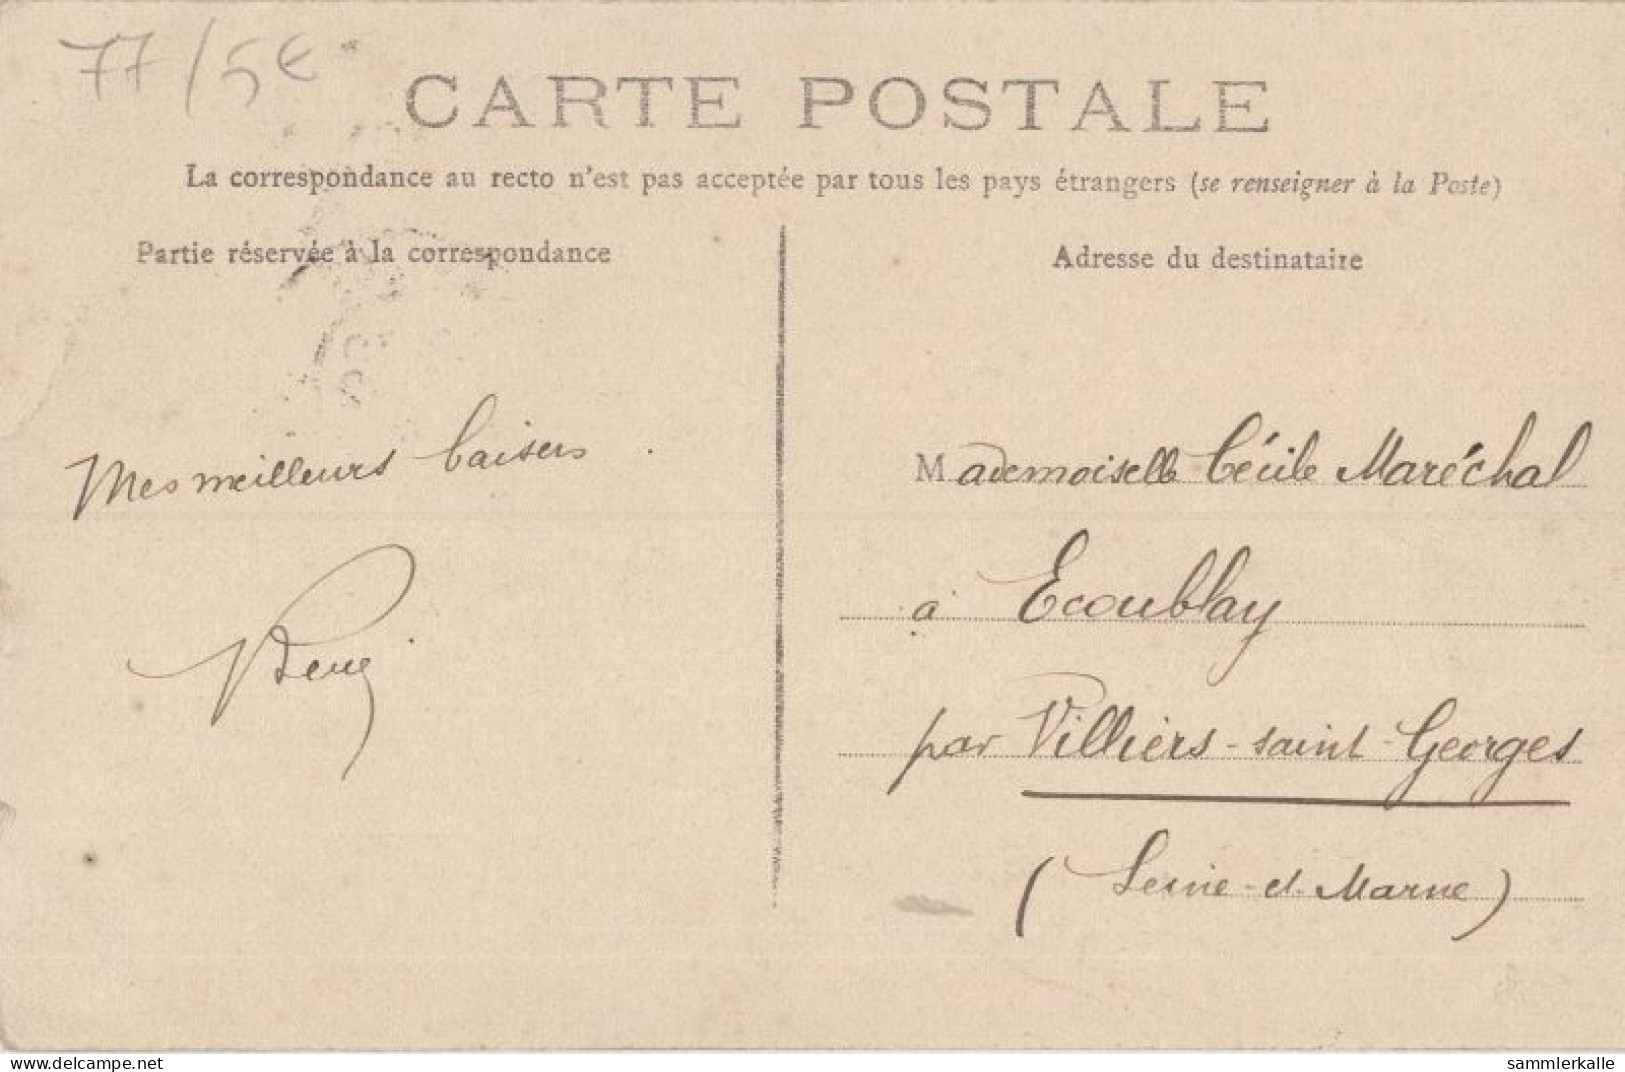 77/5€
CARTE POSTALE
La correspondance au recto n'est pas acceptée par tous les pays étrangers (se renseigner à la Poste)
Partie réservée à la correspondance
Adresse du destinataire
Mes meilleurs baisers.
Mademoiselle Cécile Maréchal
à Ecoublay
par Villiers-saint-Georges
(Seine-et-Marne)
www.delcampe.net
sammlerkalle